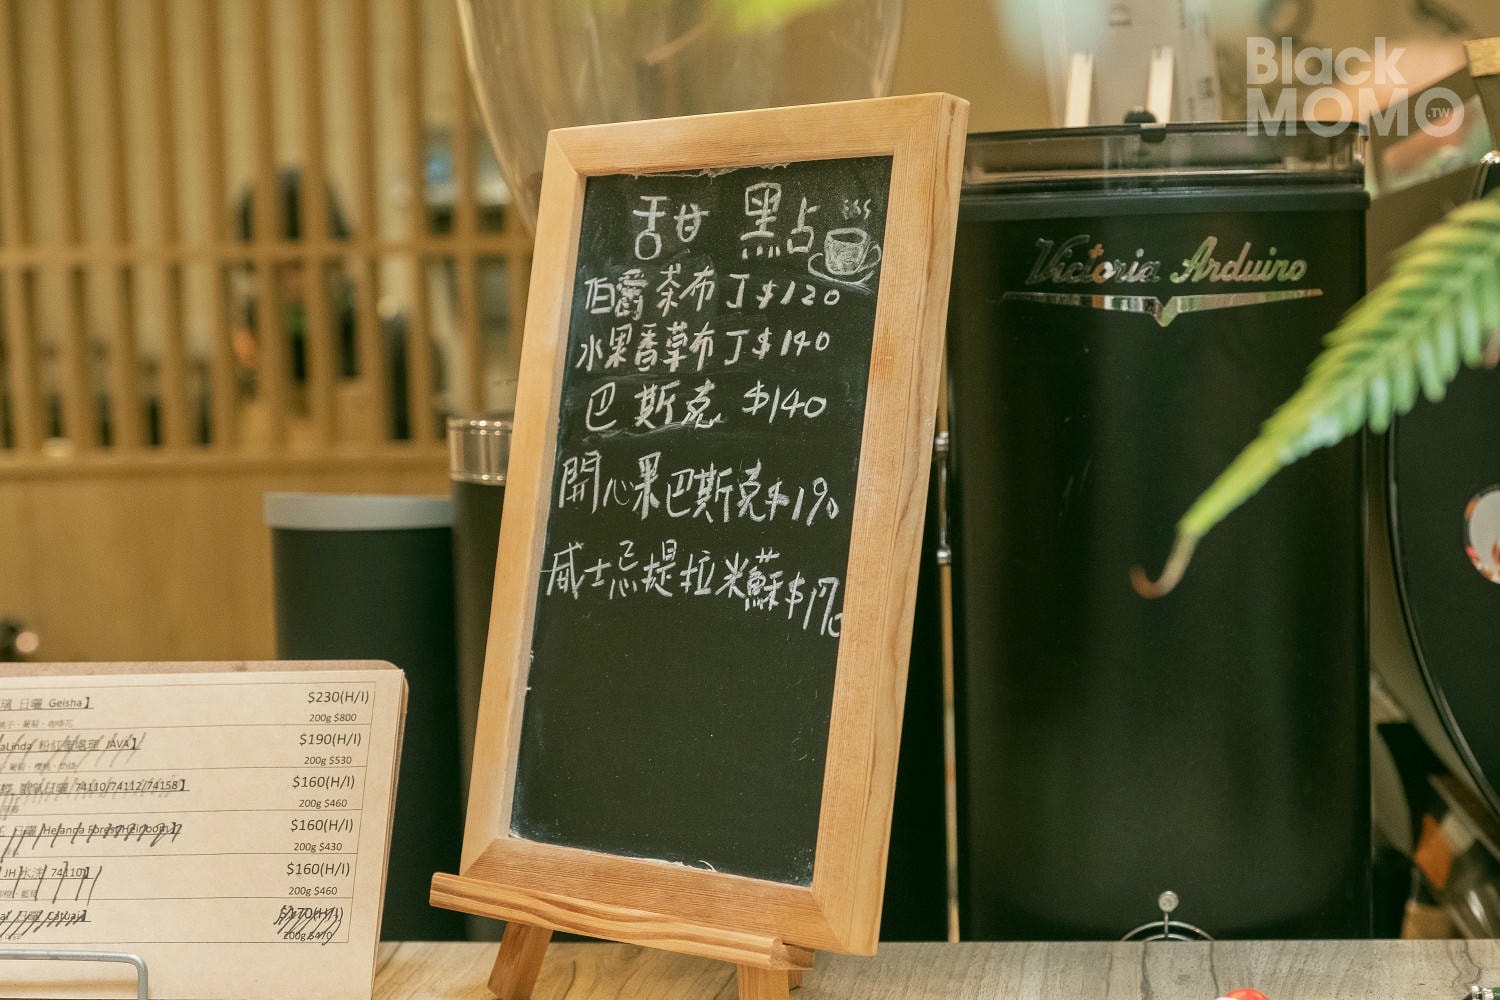 Black
MOMO.TW
Victoria Arduino
甜點
伯爵茶布丁$120
水果香草布丁$140
巴斯克 $140
開心果巴斯克$190
威士忌提拉米蘇$170
日曬 Geisha】
$230(H/I)
200g $800
aLinda 粉紅 處理 JAVA】
$190(H/I)
200g $530
日曬 74110/74112/74158】
$160(H/I)
200g $460
日曬
$160(H/I)
200g $430
JH 水洗 74110】
$160(H/I)
200g $460
日曬 Catuai】
$170(H/I)
200g $470